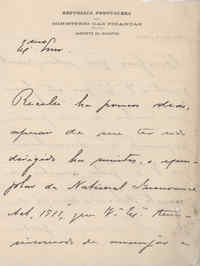 REPUBLICA PORTUGUEZA
MINISTERIO DAS FINANÇAS
GABINETE DO MINISTRO
Exmo Snr
Recebi ha poucos dias,
apezar de me ter sido
dirigido ha muitos, o exem-
plar do National Insurance
Act, 1911, que V. Exª
de